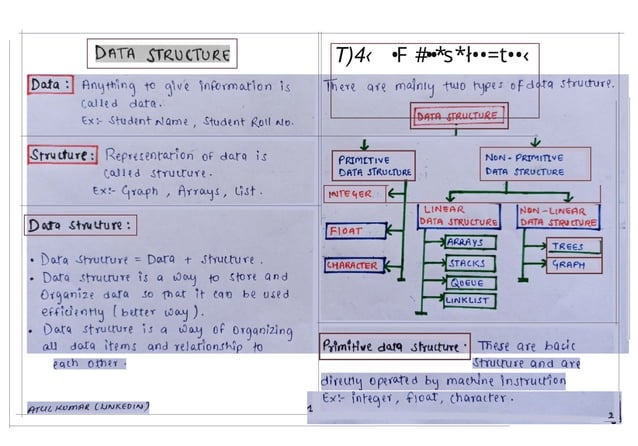 DATA STRUCTURE
Data : Anything to give information is
called data.
Ex:- Student Name, Student Roll No.
Structure : Representation of data is
called structure.
Ex:- Graph, Arrays, List.
Data structure :
• Data structure = Data + structure.
• Data structure is a way to store and
Organize data so that it can be used
efficiently (better way).
• Data structure is a way of organizing
all data items and relationship to
each other.
ATUL KUMAR (LINKEDIN)
1
There are mainly two types of data structure.
DATA STRUCTURE
PRIMITIVE
DATA STRUCTURE
NON-PRIMITIVE
DATA STRUCTURE
INTEGER
FLOAT
CHARACTER
LINEAR
DATA STRUCTURE
NON-LINEAR
DATA STRUCTURE
ARRAYS
STACKS
QUEUE
LINKLIST
TREES
GRAPH
Primitive data structure. These are basic
structure and are
directly operated by machine instruction
Ex:- integer, float, character.
2